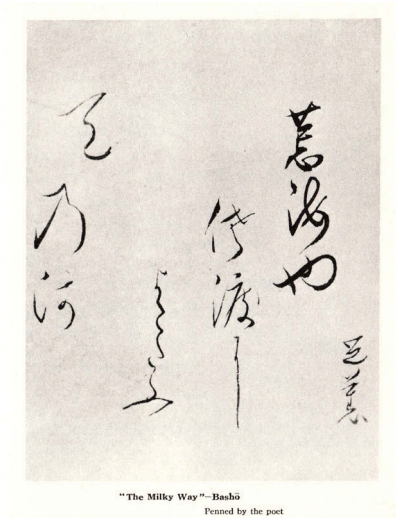 芭蕉
荒海や
佐渡に
よこたふ
天乃河
"The Milky Way"—Bashō
Penned by the poet